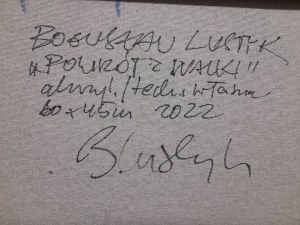 BOGUSŁAW LUSTYK
„POWRÓT Z WALKI"
akryl/tech. własna
60x45cm 2022
B Lustyk